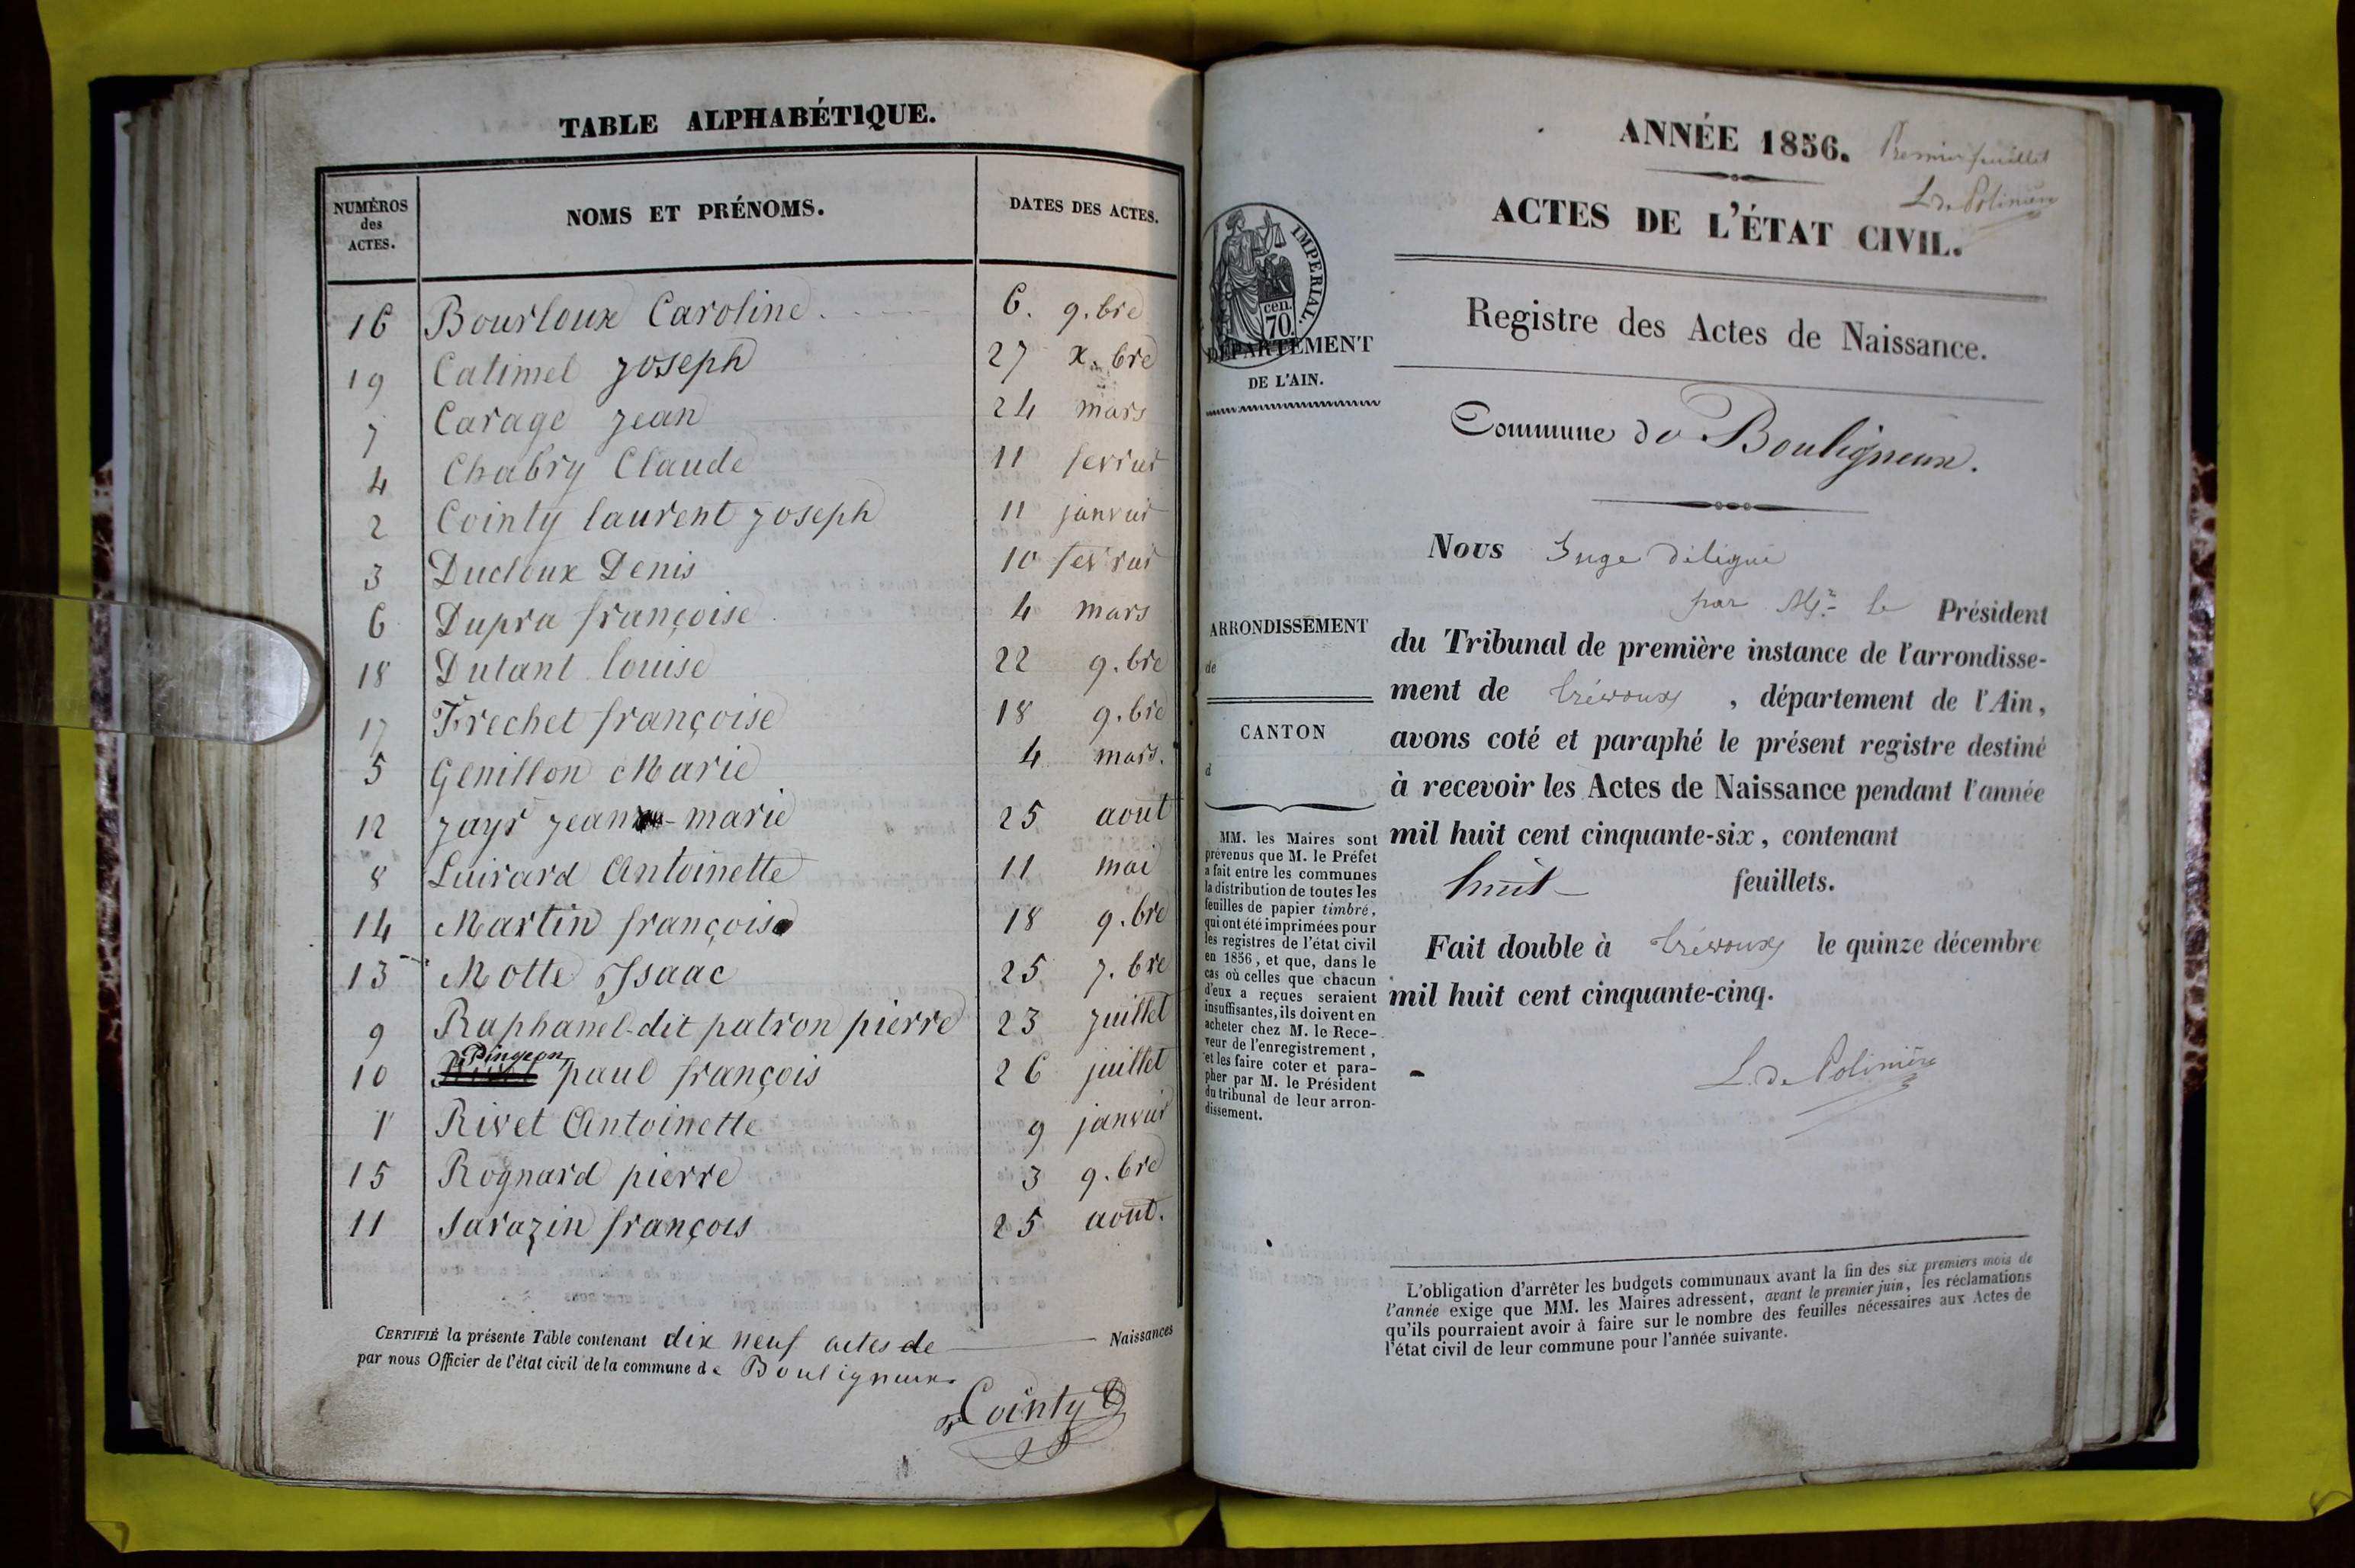 TABLE ALPHABÉTIQUE.
NUMÉROS des ACTES. NOMS ET PRÉNOMS. DATES DES ACTES.
16 Bourloux Caroline 6. 9.bre
19 Catimel Joseph 27 X.bre
7 Carage Jean 24 mars
4 Chabry Claude 11 fevrier
2 Cointy laurent Joseph 11 janvier
3 Ducloux Denis 10 fevrier
6 Dupra françoise 4 mars
18 Dutant louise 22 9.bre
17 Frechet françoise 18 9.bre
5 Genillon Marie 4 mars.
12 Jayr Jean-marie 25 aout
8 Luirard Antoinette 11 mai
14 Martin françois 18 9.bre
13 Motte Isaac 25 7.bre
9 Raphanel-dit patron pierre 23 Juillet
10 Pingeon paul françois 26 juillet
1 Rivet Antoinette 9 janvier
15 Rognard pierre 3 9.bre
11 Sarazin françois 25 aout.
CERTIFIÉ la présente Table contenant dix neuf actes de Naissances
par nous Officier de l'état civil de la commune de Bouligneux.
Cointy
ANNÉE 1856.
Premier feuillet
L. de Polinière
ACTES DE L'ÉTAT CIVIL.
IMPERIAL.
cen.
70.
DÉPARTEMENT
DE L'AIN.
Registre des Actes de Naissance.
Commune de Bouligneux.
Nous Juge délégué
par Mr. le Président
du Tribunal de première instance de l'arrondisse-
ment de trévoux, département de l'Ain,
avons coté et paraphé le présent registre destiné
à recevoir les Actes de Naissance pendant l'année
mil huit cent cinquante-six, contenant
huit feuillets.
Fait double à trévoux le quinze décembre
mil huit cent cinquante-cinq.
L. de Polinière
ARRONDISSEMENT
de
CANTON
d
MM. les Maires sont
prévenus que M. le Préfet
a fait entre les communes
la distribution de toutes les
feuilles de papier timbré,
qui ont été imprimées pour
les registres de l'état civil
en 1856, et que, dans le
cas où celles que chacun
d'eux a reçues seraient
insuffisantes, ils doivent en
acheter chez M. le Rece-
veur de l'enregistrement,
et les faire coter et para-
pher par M. le Président
du tribunal de leur arron-
dissement.
L'obligation d'arrêter les budgets communaux avant la fin des six premiers mois de
l'année exige que MM. les Maires adressent, avant le premier juin, les réclamations
qu'ils pourraient avoir à faire sur le nombre des feuilles nécessaires aux Actes de
l'état civil de leur commune pour l'année suivante.